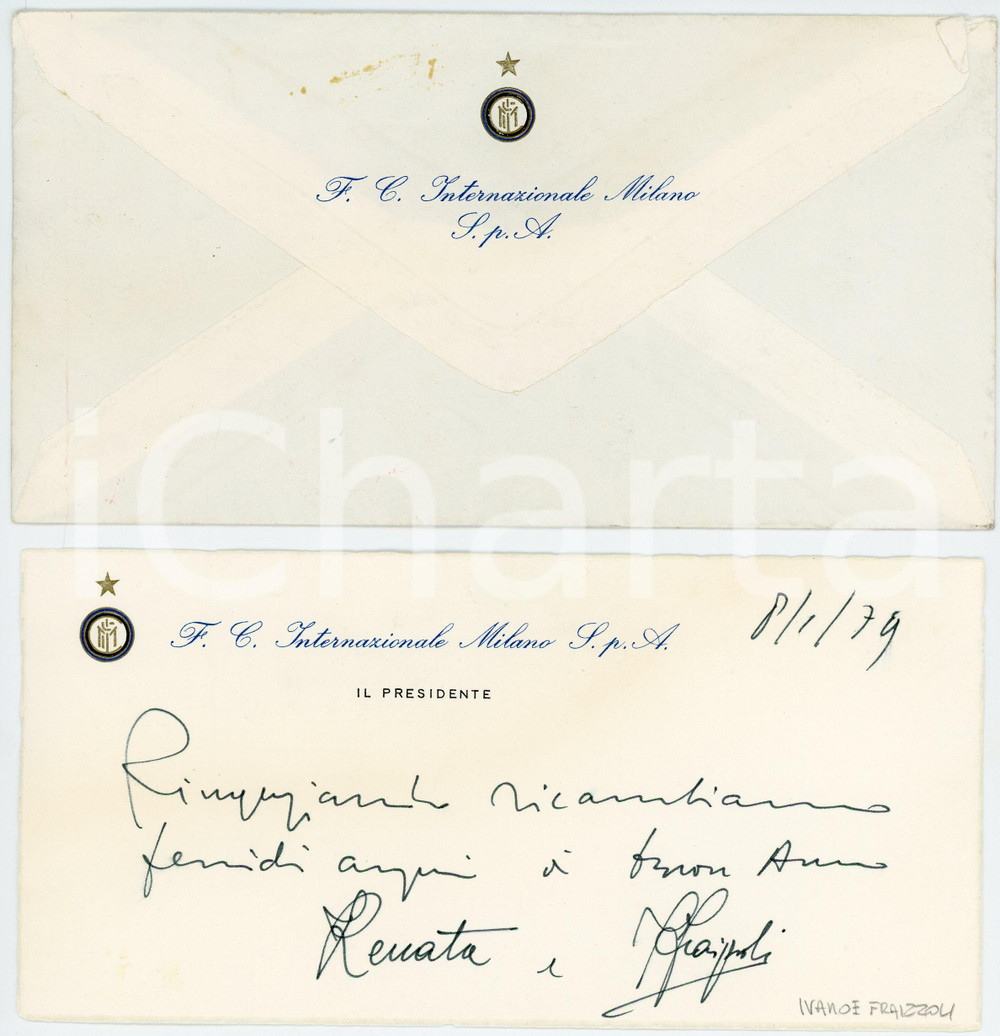 F. C. Internazionale Milano
S. p. A.
iCharta
F. C. Internazionale Milano S. p. A.
8/1/79
IL PRESIDENTE
Ringraziando ricambiamo
fervidi auguri di buon Anno
Renata e I Fraizzoli
IVANOE FRAIZZOLI